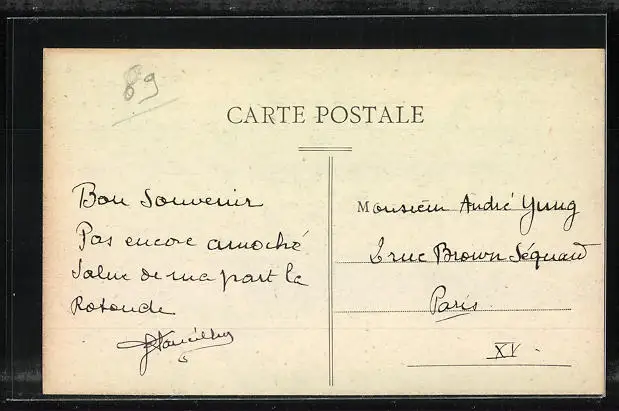 89
CARTE POSTALE
Bon Souvenir
Pas encore amoché
Salue de ma part la
Rotonde
Monsieur André Yung
2 rue Brown Séquard
Paris
XV.